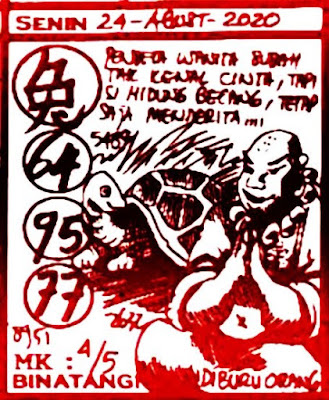 SENIN 24-AGUST-2020
兔
PENDETA WANITA SUDAH
TAK KENAL CINTA, TAPI
SI HIDUNG BELANG, TETAP
SAJA MENDERITA...
64
95
77
8951
2672
MK : 4/5
BINATANG DIBURU ORANG